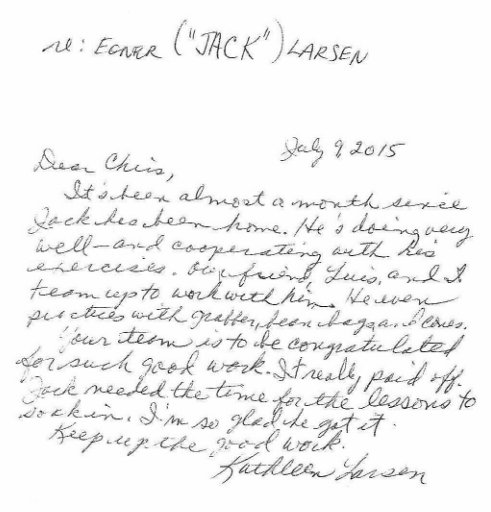 re: EGNER ("JACK") LARSEN
July 9 2015
Dear Chris,
It's been almost a month since
Jack has been home. He's doing very
well - and cooperating with his
exercises. Our friend, Luis, and I
team up to work with him. He even
practices with grabber, bean bags and cones.
Your team is to be congratulated
for such good work. It really paid off.
Jack needed the time for the lessons to
soak in. I'm so glad he got it.
Keep up the good work.
Kathleen Larsen